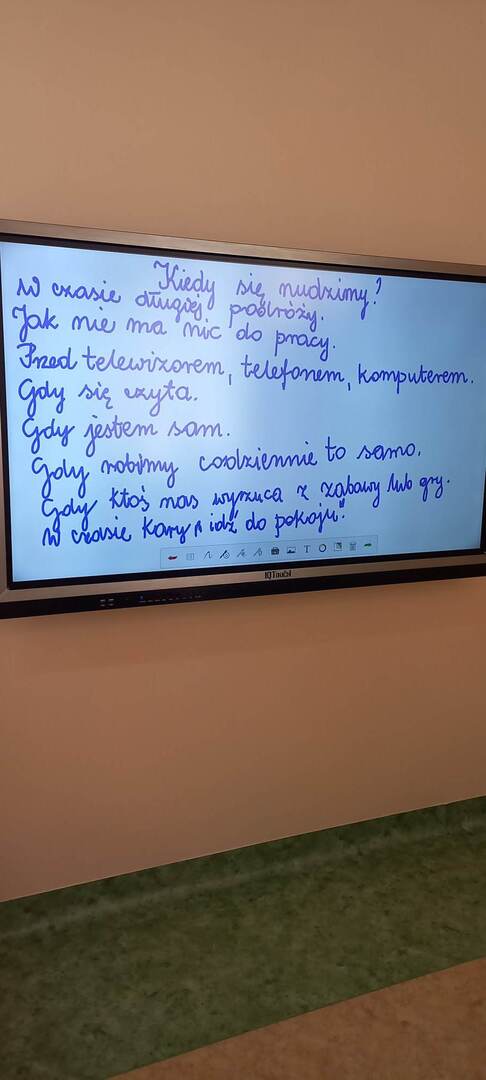 Kiedy się nudzimy?
W czasie długiej podróży.
Jak nie ma nic do pracy.
Przed telewizorem, telefonem, komputerem.
Gdy się czyta.
Gdy jestem sam.
Gdy robimy codziennie to samo.
Gdy ktoś nas wyrzuca z zabawy lub gry.
W czasie kary „idź do pokoju".
IQTouch